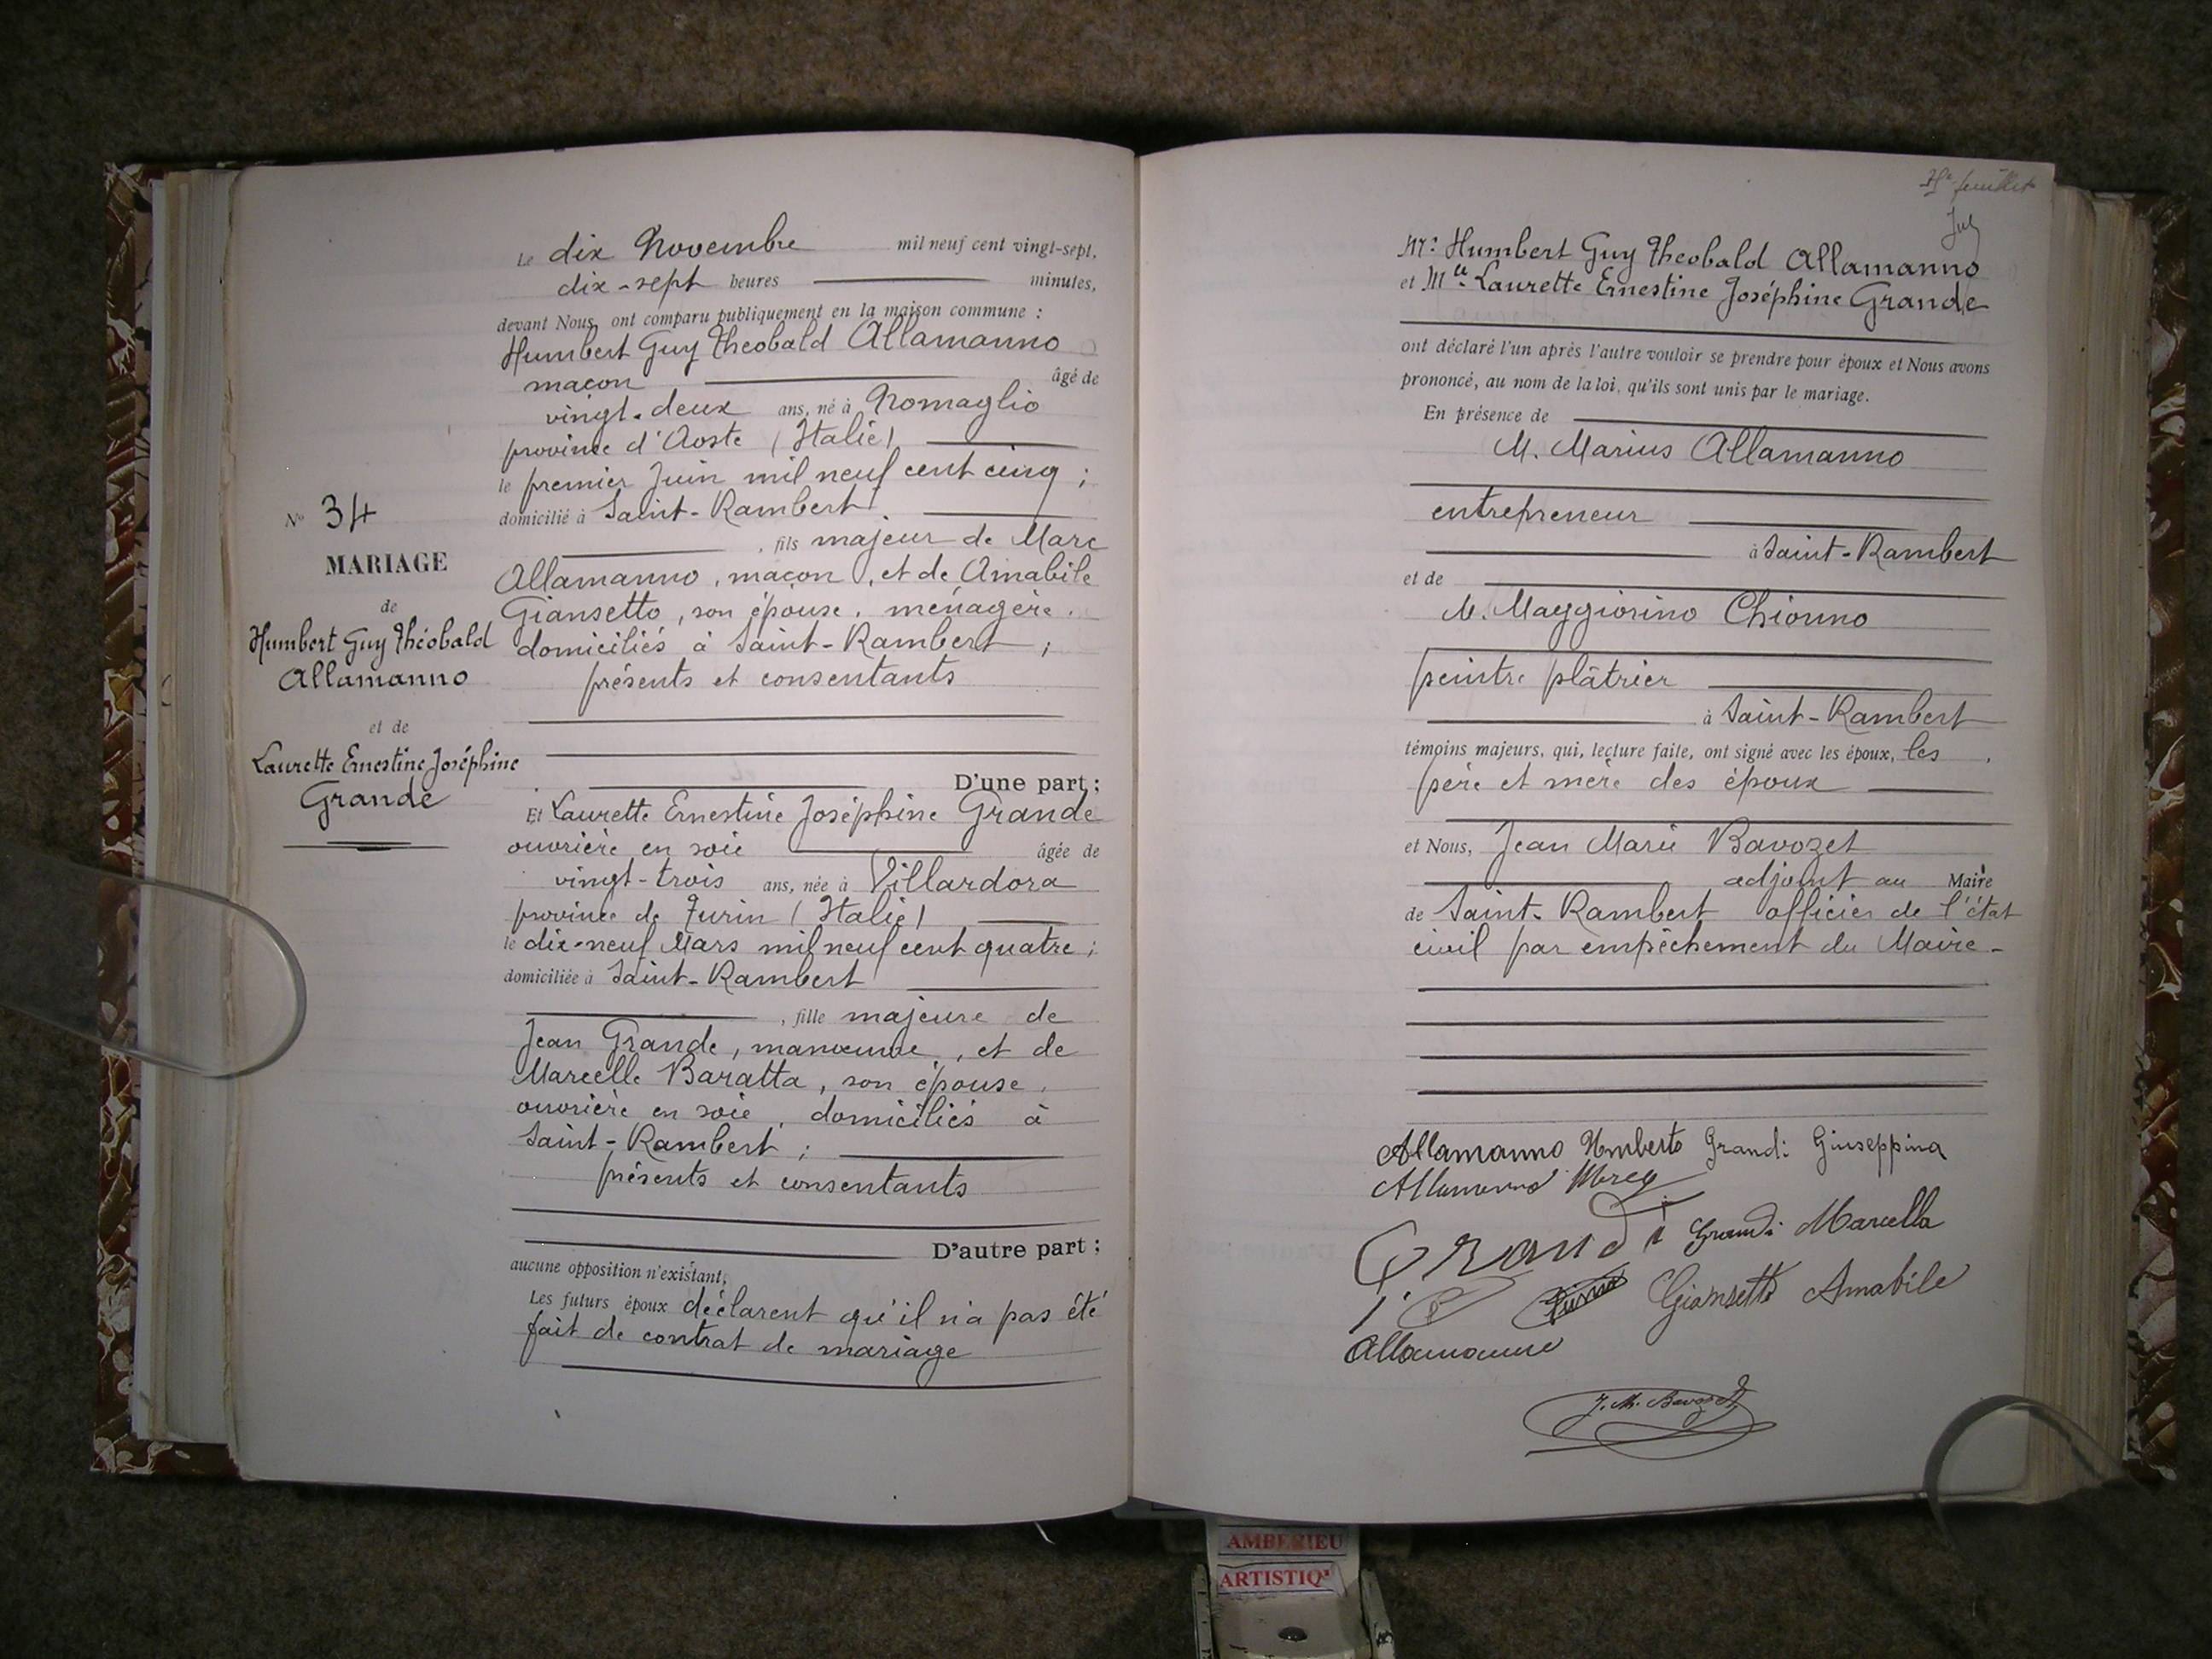 N° 34
MARIAGE
de
Humbert Guy Théobald
Allamanno
et de
Laurette Ernestine Joséphine
Grande
Le dix Novembre mil neuf cent vingt-sept,
dix-sept heures minutes,
devant Nous, ont comparu publiquement en la maison commune :
Humbert Guy Theobald Allamanno
maçon âgé de
vingt-deux ans, né à Nomaglio
province d'Aoste (Italie)
le premier Juin mil neuf cent cinq ;
domicilié à Saint-Rambert
, fils majeur de Marc
Allamanno, maçon, et de Amabile
Giansetto, son épouse, ménagère,
domiciliés à Saint-Rambert ;
présents et consentants
D'une part ;
Et Laurette Ernestine Joséphine Grande
ouvrière en soie âgée de
vingt-trois ans, née à Villardora
province de Turin (Italie)
le dix-neuf Mars mil neuf cent quatre ;
domiciliée à Saint-Rambert
, fille majeure de
Jean Grande, manœuvre, et de
Marcelle Baratta, son épouse,
ouvrière en soie, domiciliés à
Saint-Rambert ;
présents et consentants
D'autre part ;
aucune opposition n'existant,
Les futurs époux déclarent qu'il n'a pas été
fait de contrat de mariage
feuillet
Mr Humbert Guy Theobald Allamanno
et Mlle Laurette Ernestine Joséphine Grande
ont déclaré l'un après l'autre vouloir se prendre pour époux et Nous avons
prononcé, au nom de la loi, qu'ils sont unis par le mariage.
En présence de
M. Marius Allamanno
entrepreneur
à Saint-Rambert
et de
M. Maggiorino Chiorino
peintre plâtrier
à Saint-Rambert
témoins majeurs, qui, lecture faite, ont signé avec les époux, les
père et mère des époux
et Nous, Jean Marie Bavozet
adjoint au Maire
de Saint-Rambert officier de l'état
civil par empêchement du Maire
Allamanno Umberto Grandi Giuseppina
Allamanno Marco
Grandi Grandi Marcella
Giansetto Amabile
Allamanno
J. M. Bavozet
AMBERIEU
ARTISTIQ